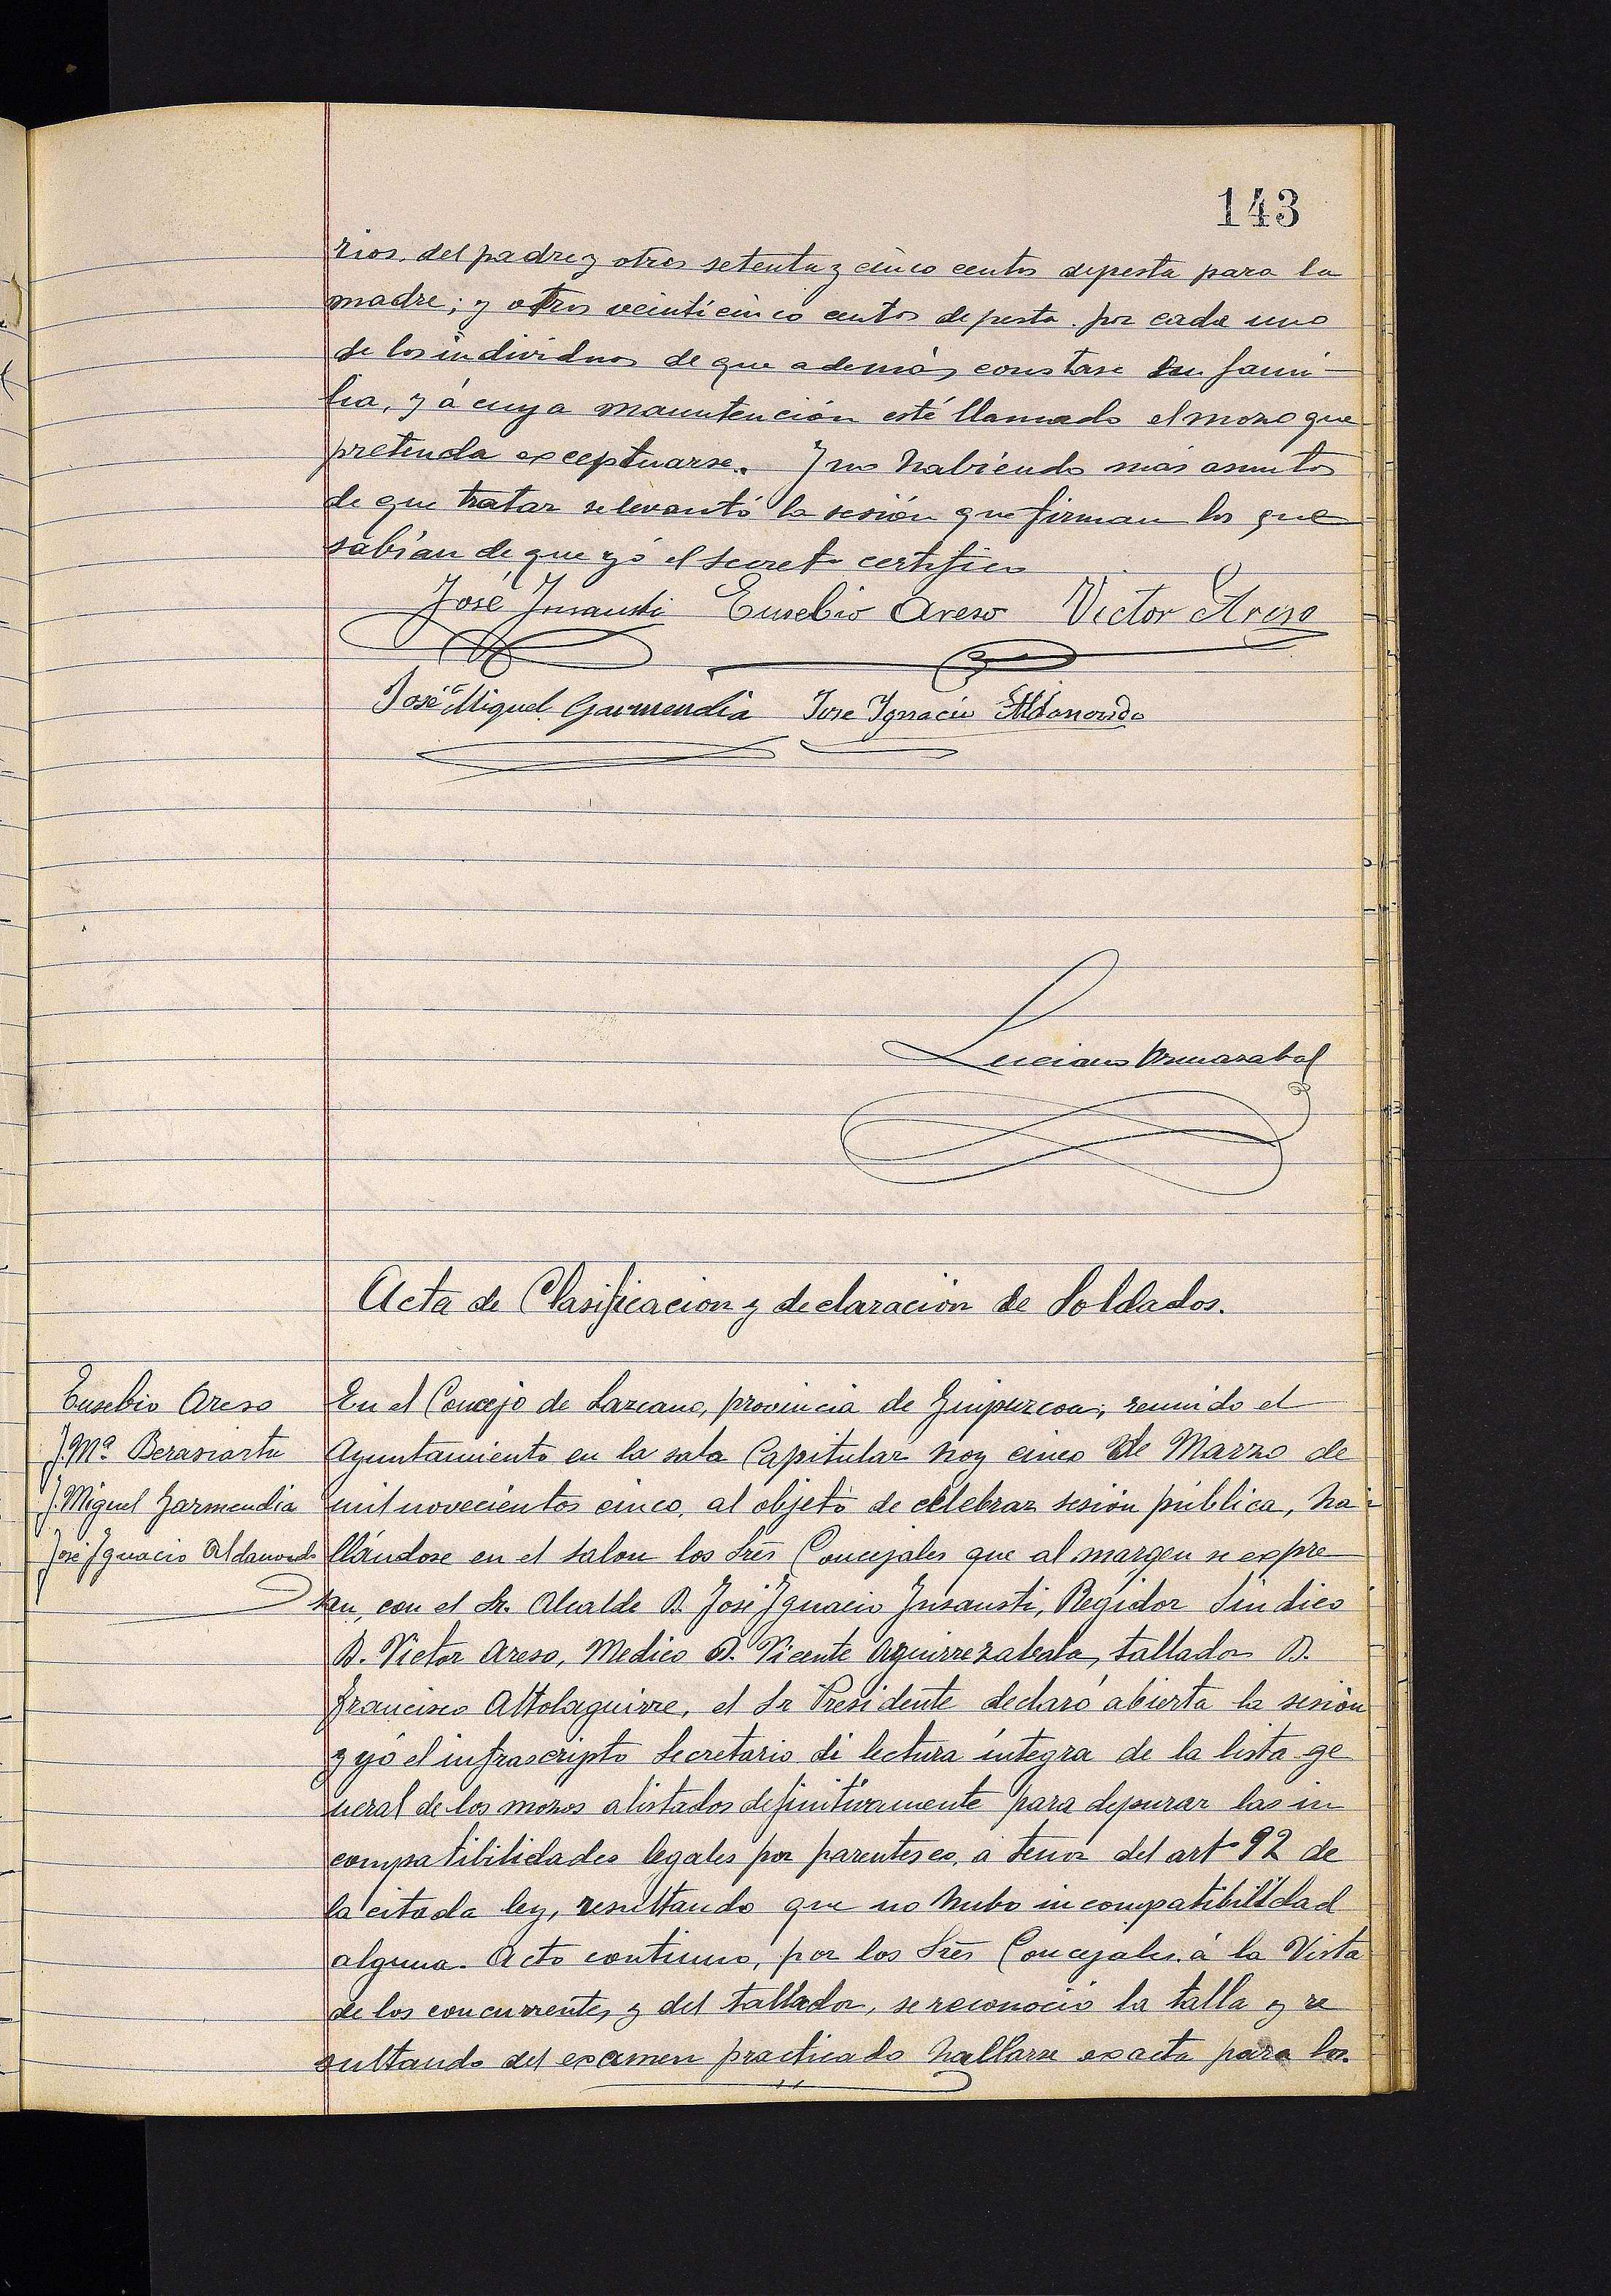 143
rios. del padre y otros setenta y cinco cents de pesta para la
madre; y otros veinticinco cents de pesta. por cada uno
de los individuos de que además constase su fami-
lia, y á cuya manutención esté llamado el mozo que
pretenda exceptuarse. Y no habiendo más asuntos
de que tratar se levantó la sesión que firman los que
sabían de que yó el Secreto certifico
José Insausti Eusebio Areso Victor Areso
José Miguel Garmendia Jose Ignacio Aldanondo
Luciano
Acta de Clasificacion y declaración de Soldados.
Eusebio Areso
J. Mª. Berasiartu
J. Miguel Garmendia
José Ignacio Aldanondo
En el Concejo de Lazcano, provincia de Guipuzcoa; reunido el
Ayuntamiento en la sala Capitular hoy cinco de Marzo de
mil novecientos cinco, al objeto de celebrar sesión pública, ha-
llándose en el salon los Sres Concejales que al margen se expre
san, con el Sr. Alcalde D. José Ignacio Insausti, Regidor Sindico
D. Victor Areso, Medico D. Vicente Aguirrezabala, tallador D.
Francisco Altolaguirre, el Sr Presidente declaró abierta la sesión
y yó el infrascripto Secretario di lectura íntegra de la lista ge
neral de los mozos alistados definitivamente para depurar las in
compatibilidades legales por parentesco, á tenor del arto 92 de
la citada ley, resultando que no hubo incompatibilidad
alguna. Acto continuo, por los Sres Concejales, á la Vista
de los concurrentes y del tallador, se reconoció la talla y re
sultando del examen practicado hallarse exacta para los